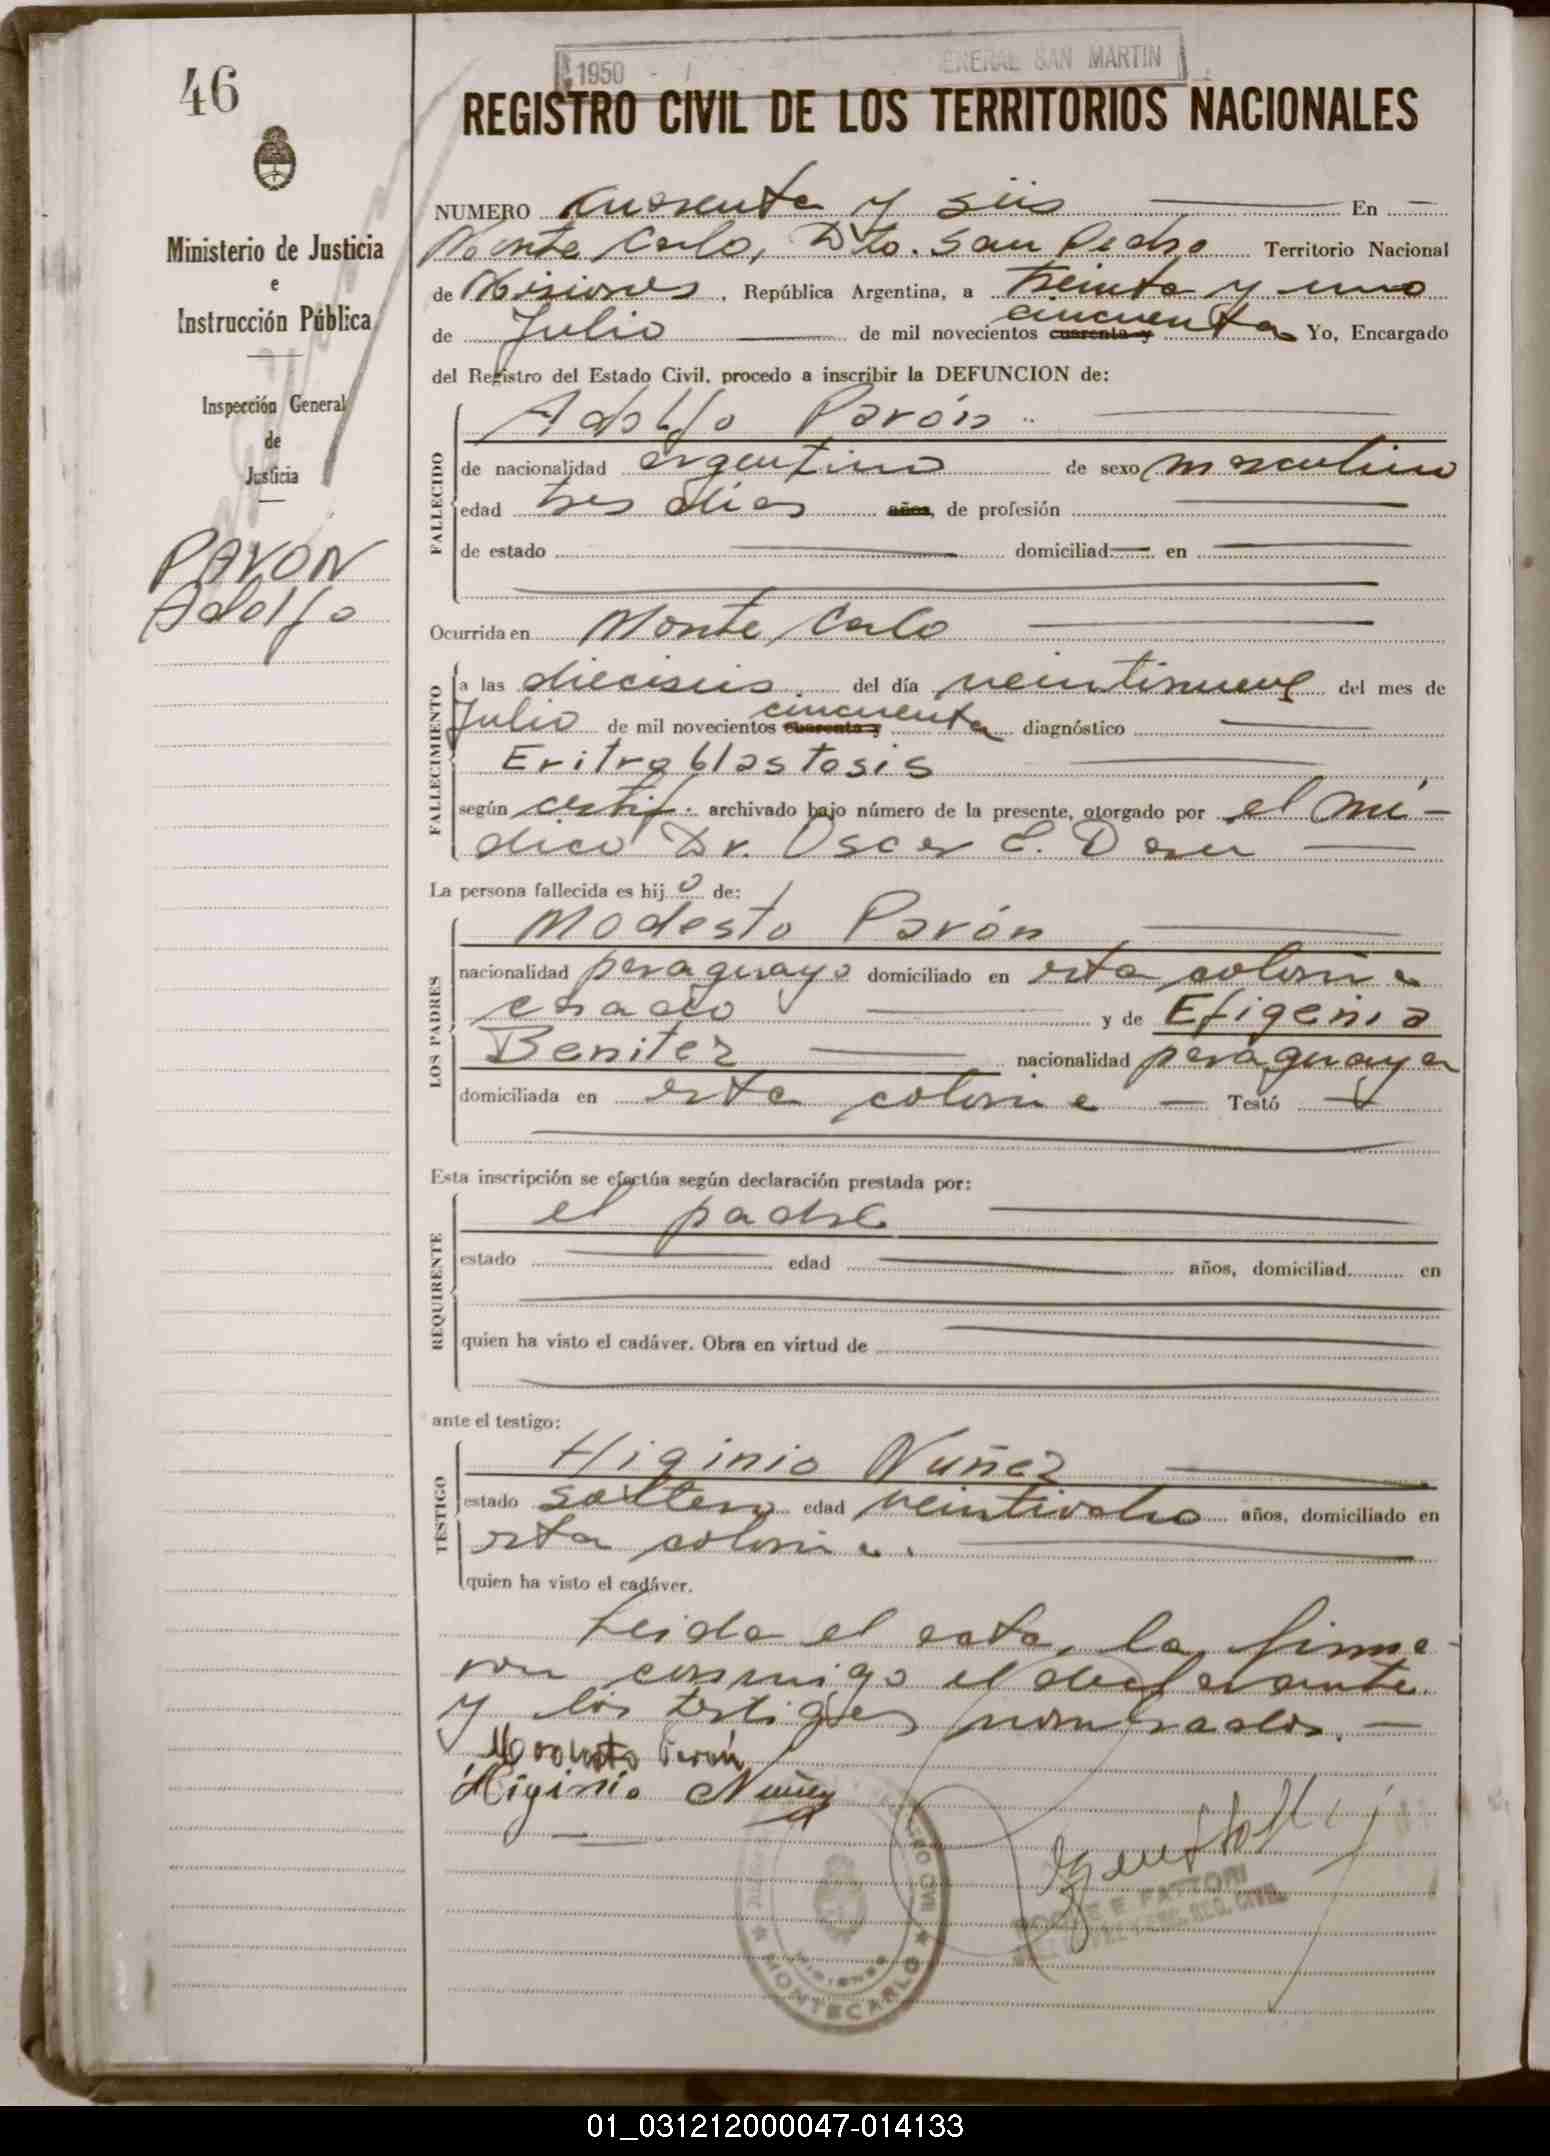 1950 ENERAL SAN MARTIN
46
REGISTRO CIVIL DE LOS TERRITORIOS NACIONALES
Ministerio de Justicia
e
Instrucción Pública
Inspección General
de
Justicia
PAVON
Adolfo
NUMERO cuarenta y seis En
Monte Carlo, Dto. San Pedro Territorio Nacional
de Misiones, República Argentina, a treinta y uno
de Julio de mil novecientos cuarenta y cincuenta Yo, Encargado
del Registro del Estado Civil, procedo a inscribir la DEFUNCION de:
FALLECIDO
Adolfo Pavón
de nacionalidad argentino de sexo masculino
edad tres dias años, de profesión
de estado domiciliad en
Ocurrida en Monte Carlo
FALLECIMIENTO
a las dieciseis del día veintinueve del mes de
Julio de mil novecientos cuarenta y cincuenta diagnóstico
Eritroblastosis
según certif. archivado bajo número de la presente, otorgado por el mé-
dico Dr. Oscar E.
La persona fallecida es hijo de:
LOS PADRES
Modesto Pavón
nacionalidad paraguayo domiciliado en esta colonia
casado y de Efigenia
Benitez nacionalidad paraguaya
domiciliada en esta colonia Testó
Esta inscripción se efectúa según declaración prestada por:
REQUIRENTE
el padre
estado edad años, domiciliad en
quien ha visto el cadáver. Obra en virtud de
ante el testigo:
TESTIGO
Higinio Nuñez
estado soltero edad veintiocho años, domiciliado en
esta colonia.
quien ha visto el cadáver.
Leida el acta, la firma-
ron conmigo el declarante
y los testigos nombrados.
Modesto Pavón
Higinio Nuñez
MISIONES
MONTECARLO
E FATTORI
REG. CIVIL
01_031212000047-014133